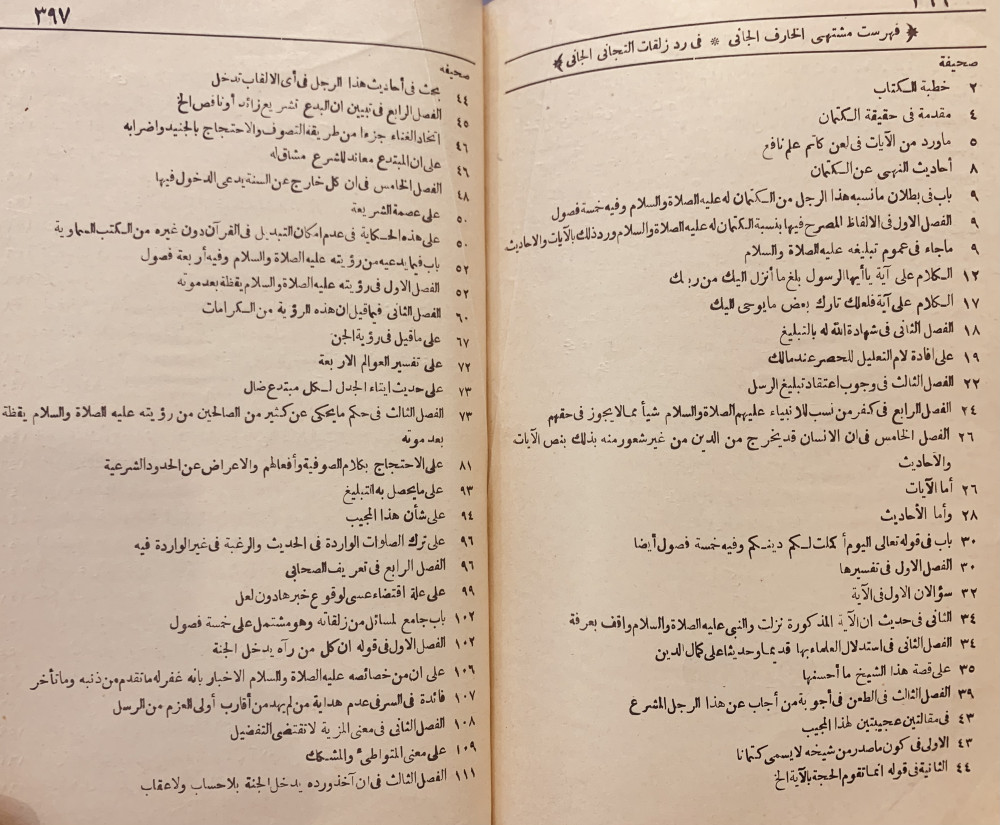 ﴿ فهرست مشتهى الخارف الجانى * فى رد زلقات التجانى الجانى ﴾
صحيفة
٢ خطبة الكتاب
٤ مقدمة فى حقيقة الكتمان
٥ ماورد من الآيات فى لعن كاتم علم نافع
٨ أحاديث النهى عن الكتمان
٩ باب فى بطلان مانسبه هذا الرجل من الكتمان له عليه الصلاة والسلام وفيه خمسة فصول
٩ الفصل الاول فى الالفاظ المصرح فيها بنسبة الكتمان له عليه الصلاة والسلام ورد ذلك بالآيات والاحاديث
٩ ماجاء فى عموم تبليغه عليه الصلاة والسلام
١٢ الكلام على آية ياأيها الرسول بلغ ما أنزل اليك من ربك
١٧ الكلام على آية فلعلك تارك بعض مايوحى اليك
١٨ الفصل الثانى فى شهادة الله له بالتبليغ
١٩ على افادة لام التعليل للحصر عند مالك
٢٢ الفصل الثالث فى وجوب اعتقاد تبليغ الرسل
٢٤ الفصل الرابع فى كفر من نسب للانبياء عليهم الصلاة والسلام شيأ مما لايجوز فى حقهم
٢٦ الفصل الخامس فى ان الانسان قد يخرج من الدين من غير شعور منه بذلك بنص الآيات
والأحاديث
٢٦ أما الآيات
٢٨ وأما الأحاديث
٣٠ باب فى قوله تعالى اليوم أكملت لكم دينكم وفيه خمسة فصول أيضا
٣٠ الفصل الاول فى تفسيرها
٣٢ سؤالان الاول فى الآية
٣٤ الثانى فى حديث ان الآية المذكورة نزلت والنبى عليه الصلاة والسلام واقف بعرفة
٣٤ الفصل الثانى فى استدلال العلماء بها قديما وحديثا على كمال الدين
٣٥ على قصة هذا الشيخ ما أحسنها
٣٩ الفصل الثالث فى الطعن فى أجوبة من أجاب عن هذا الرجل المشرع
٤٣ فى مقالتين عجيبتين لهذا المجيب
٤٣ الاولى فى كون ماصدر من شيخه لايسمى كتمانا
٤٤ الثانية فى قوله انما تقوم الحجة بالآية الخ
٣٩٧
صحيفه
٤٤ بحث فى أحاديث هذا الرجل فى أى الالقاب تدخل
٤٥ الفصل الرابع فى تبيين ان البدع تشريع زائد أو ناقص الخ
٤٦ اتخاذ الغناء جزءا من طريقة التصوف والاحتجاج بالجنيد واضرابه
٤٦ على ان المبتدع معاند للشرع مشاق له
٤٨ الفصل الخامس فى ان كل خارج عن السنة يدعى الدخول فيها
٥٠ على عصمة الشريعة
٥٠ على هذه الحكاية فى عدم امكان التبديل فى القرآن دون غيره من الكتب السماوية
٥٢ باب فيما يدعيه من رؤيته عليه الصلاة والسلام وفيه أربعة فصول
٥٢ الفصل الاول فى رؤيته عليه الصلاة والسلام يقظة بعد موته
٦٠ الفصل الثانى فيما قيل ان هذه الرؤية من الكرامات
٦٧ على ماقيل فى رؤية الجن
٧٢ على تفسير العوالم الاربعة
٧٣ على حديث ايتاء الجدل لكل مبتدع ضال
٧٣ الفصل الثالث فى حكم مايحكى عن كثير من الصالحين من رؤيته عليه الصلاة والسلام يقظة
بعد موته
٨١ على الاحتجاج بكلام الصوفية وأفعالهم والاعراض عن الحدود الشرعية
٩٣ على مايحصل به التبليغ
٩٤ على شأن هذا المجيب
٩٦ على ترك الصلوات الواردة فى الحديث والرغبة فى غير الواردة فيه
٩٦ الفصل الرابع فى تعريف الصحابى
٩٩ على علة اقتضاء عسى لوقوع خبرها دون لعل
١٠٢ باب جامع لمسائل من زلقاته وهو مشتمل على خمسة فصول
١٠٢ الفصل الاول فى قوله ان كل من رآه يدخل الجنة
١٠٦ على ان من خصائصه عليه الصلاة والسلام الاخبار بانه غفر له ماتقدم من ذنبه وماتأخر
١٠٧ فائدة فى السر فى عدم هداية من لم يهد من أقارب أولى العزم من الرسل
١٠٨ الفصل الثانى فى معنى المزية لاتقتضى التفضيل
١٠٩ على معنى المتواطىء والمشكك
١١١ الفصل الثالث فى ان آخذ ورده يدخل الجنة بلاحساب ولاعقاب